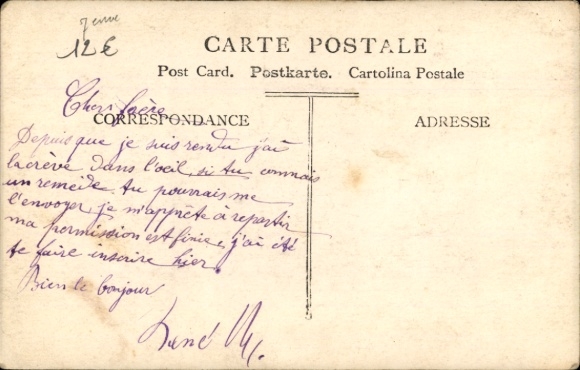 7 eme
12 €
CARTE POSTALE
Post Card. Postkarte. Cartolina Postale
CORRESPONDANCE
ADRESSE
Cher frère
Depuis que je suis rendu j'ai
la crève dans l'œil, si tu connais
un remède tu pourrais me
l'envoyer, je m'apprête à repartir
ma permission est finie, j'ai été
te faire inscrire hier.
Bien le bonjour
René